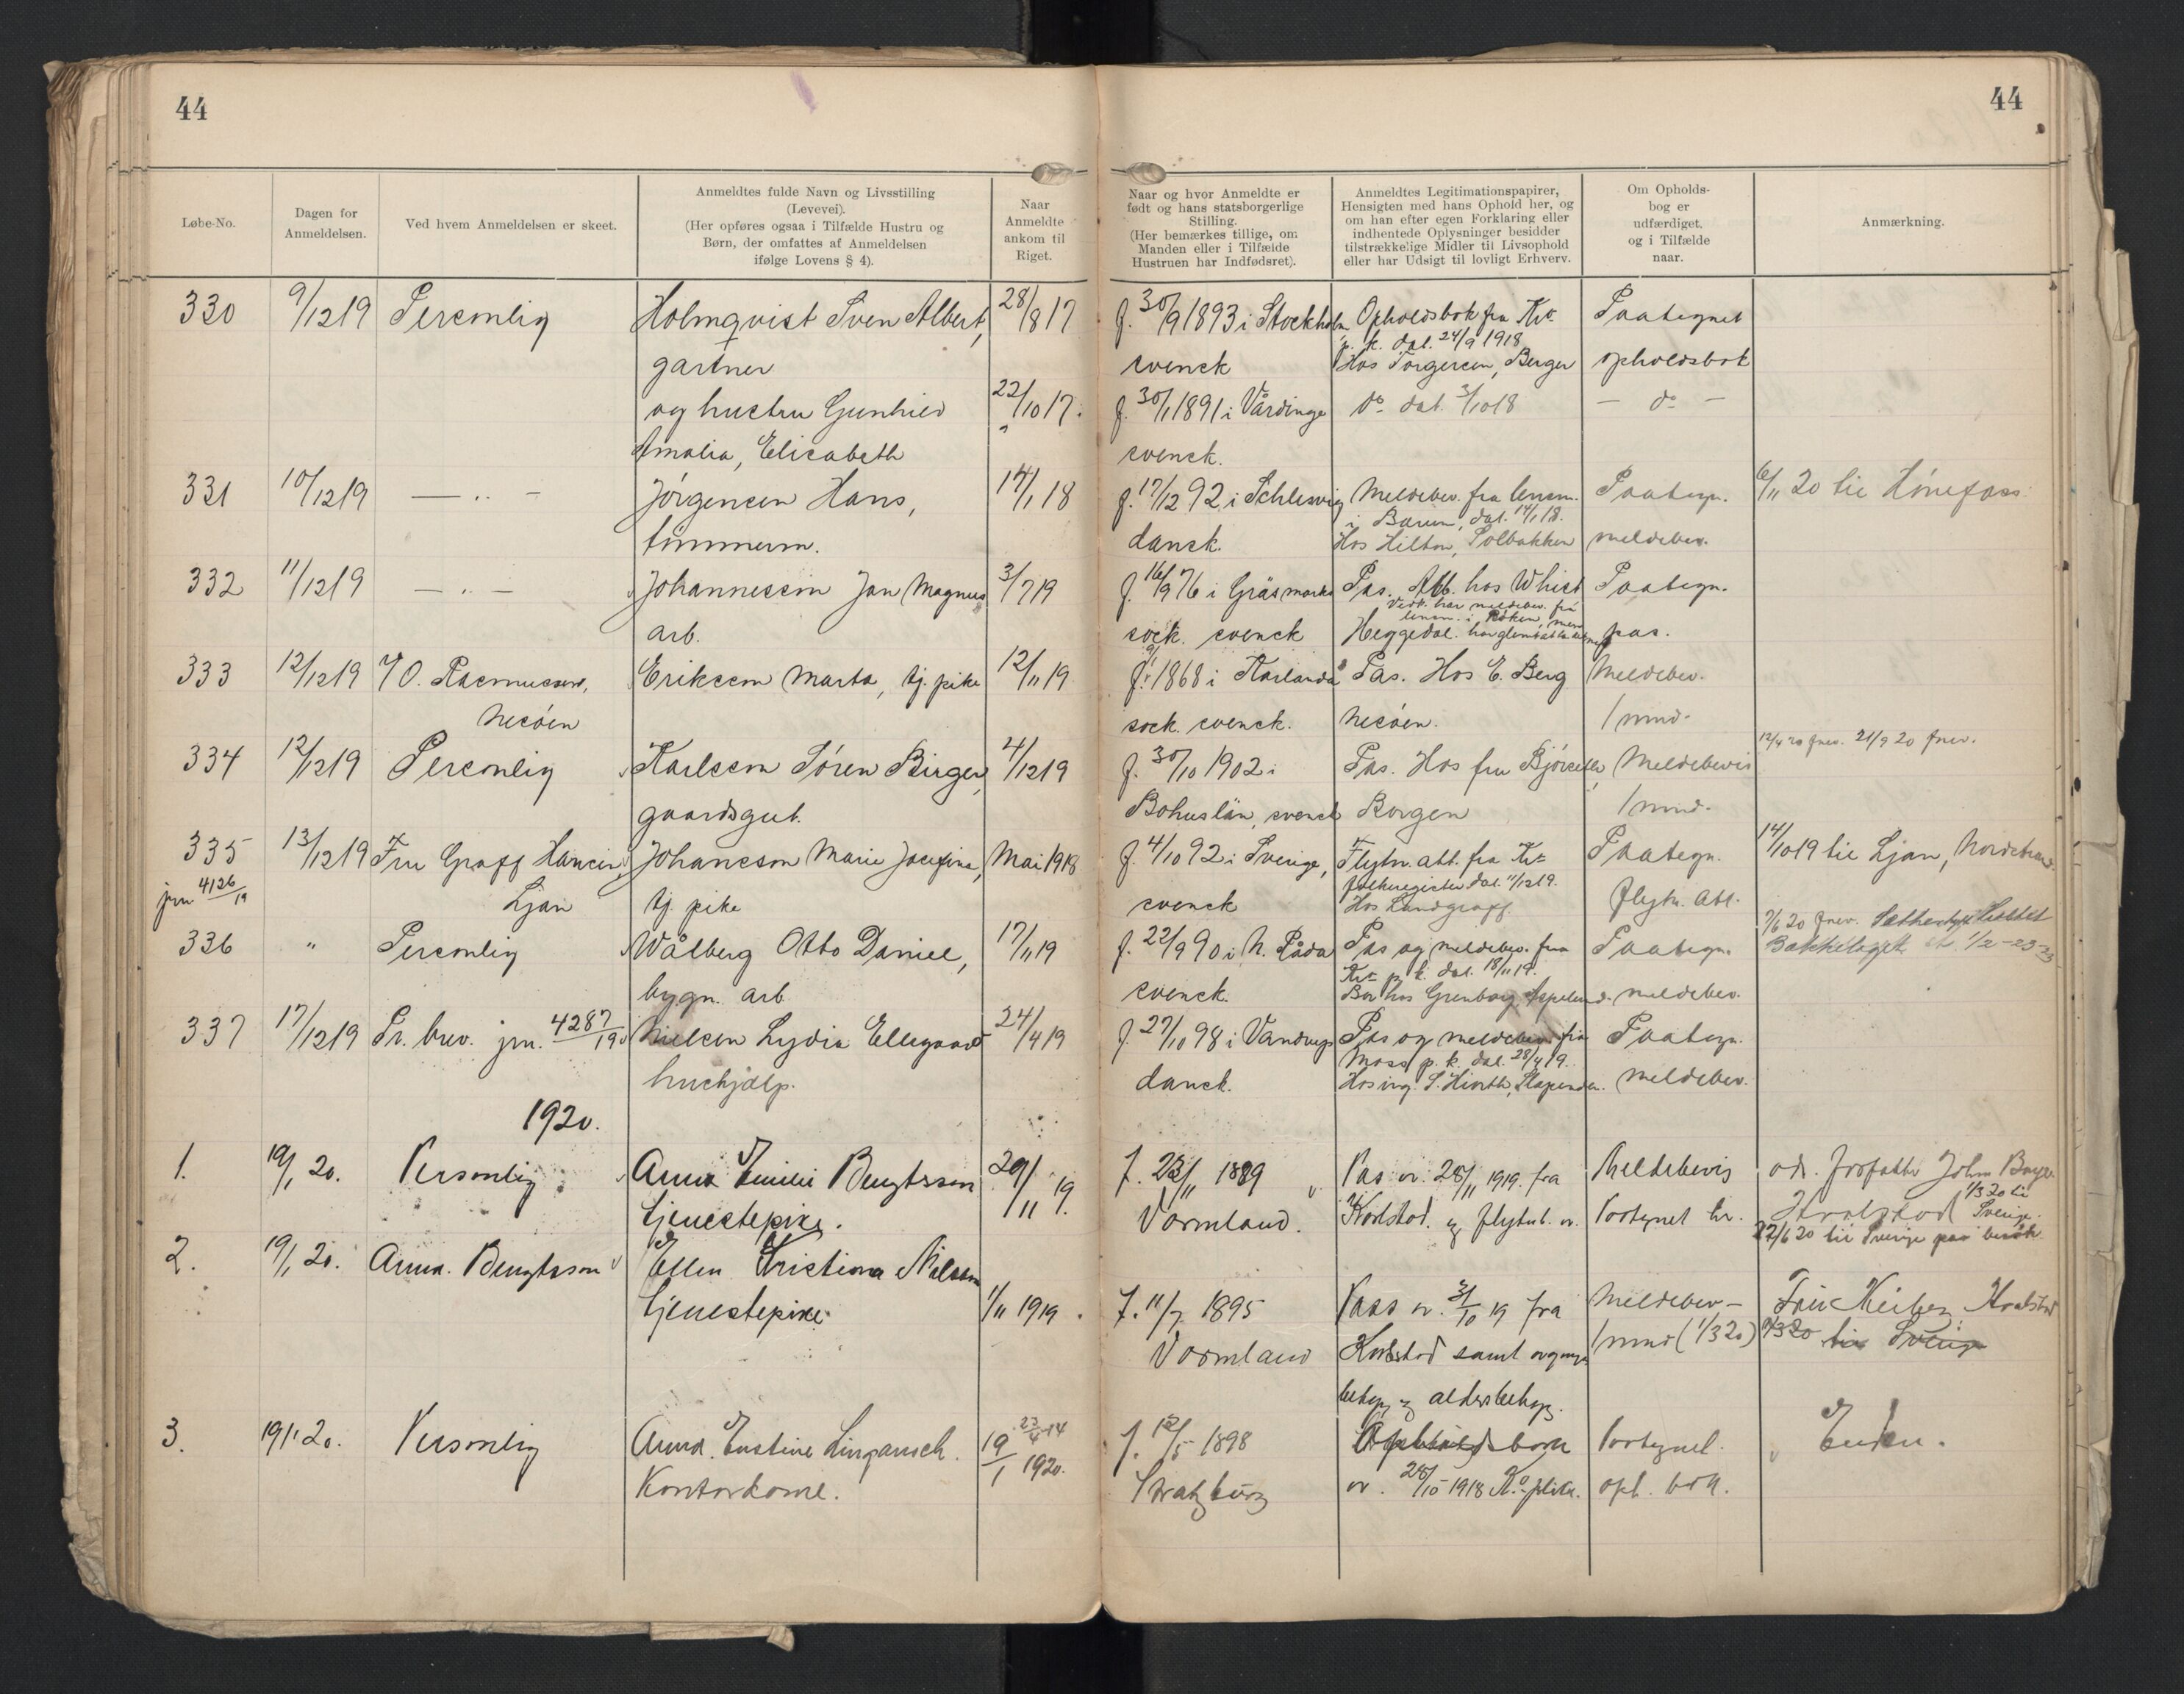 44
44
Løbe-No.
Dagen for
Anmeldelsen.
Ved hvem Anmeldelsen er skeet.
Anmeldtes fulde Navn og Livsstilling
(Levevei).
(Her opføres ogsaa i Tilfælde Hustru og
Børn, der omfattes af Anmeldelsen
ifølge Lovens § 4).
Naar
Anmeldte
ankom til
Riget.
Naar og hvor Anmeldte er
født og hans statsborgerlige
Stilling.
(Her bemærkes tillige, om
Manden eller i Tilfælde
Hustruen har Indfødsret).
Anmeldtes Legitimationspapirer,
Hensigten med hans Ophold her, og
om han efter egen Forklaring eller
indhentede Oplysninger besidder
tilstrækkelige Midler til Livsophold
eller har Udsigt til lovligt Erhverv.
Om Opholds-
bog er
udfærdiget.
og i Tilfælde
naar.
Anmærkning.
330 9/12 19 Personlig Holmqvist Sven Albert, 28/8 17 f. 30/9 1893 i Stockholm, Opholdsbok fra Kra Paategnet
p. k. dat. 24/9 1918
gartner svensk Hos Torgersen, Berger opholdsbok
og hustru Gunhild 22/10 17. f. 30/1 1891 i Vårdinge do dat. 3/10 18 — do —
Amalia, Elisabeth svensk.
331 10/12 19 — " — Jørgensen Hans, 14/1 18 f. 17/12 92 i Schlesvig Meldebev. fra lensm. Paategn. 6/11 20 til Hønefoss
i Bærum, dat. 14/1 18.
tømmerm. dansk. Hos Hilton, Solbakken meldebev.
332 11/12 19 — " — Johannesson Jan Magnus 3/7 19 f. 16/9 76 i Gräsmarks Pas. Arb. hos Whist Paategn.
Vedk. har meldebev. fra
lensm. i Røken, men
arb. sock. svensk Heggedal. har glemt at ta det med pas.
333 12/12 19 O. Rasmussen, Eriksson Marta, tj. pike 12/11 19 f. 9/1 1868 i Karlanda Pas. Hos E. Berg Meldebev.
Nesøen sock. svensk. Nesøen. 1 mnd.
12/4 20 fnev. 21/9 20 fnev.
334 12/12 19 Personlig Karlsson Søren Birger, 4/12 19 f. 30/10 1902 i Pas. Hos fru Bjørseth, Meldebevis
gaardsgut. Bohuslän, svensk Borgen 1 mnd.
335 13/12 19 Fru Graff Hansen, Johansson Marie Josefina, Mai 1918 f. 4/10 92 i Sverige, Flytn. att. fra Kra Paategn. 14/10 19 til Ljan, Nordstrand
folkeregister dat. 11/12 19.
jrn 4126/19 Ljan tj. pike svensk Hos Landgraff. flytn. att.
336 " Personlig Wålberg Otto Daniel, 17/11 19 f. 22/9 90 i N. Råda Pas og meldebev. fra Paategn. Bækkelaget
Kra p. k. dat. 18/11 19.
bygn. arb svensk. Bor hos Grenborg, meldebev.
337 17/12 19 Pr. brev. jrn. 4287/19 Nielsen Lydia Ellegaard 24/4 19 f. 27/10 98 i Vandrup Pas og meldebev. fra Paategn.
Moss p. k. dat. 28/4 19.
hushjælp. dansk. Hos ing. S. Hiorth, Slependen. meldebev.
1920.
1. 19/1 20. Personlig Anna Emilie Bengtsson 29/11 19. f. 23/11 1889 Pas av. 28/11 1919. fra Meldebevis ads. forfatter John Bojer
1/3 20 til
tjenestepike. Värmland. Karlstad. og flytnb. av. Paategnet Hvalstad Sverige.
22/6 20 til Sverige paa besøk
2. 19/1 20. Anna. Bengtsson Ellen Kristiona Nilsson
tjenestepike 1/11 1919. f. 11/7 1895 Pass av. 3/10 19 fra Meldebev— Hvalstad
Värmland Karlstad samt 1 mnd (1/3 20) 1/3 20 til Sverige
og aldersbetyg.
3. 19/1 20. Personlig Anna. Enstine 19/1 1920. 23/4 14 f. 12/5 1898 Opholdsbok Paategnet. Enden.
Kontordame. av. 28/10 1918 oph. bok.